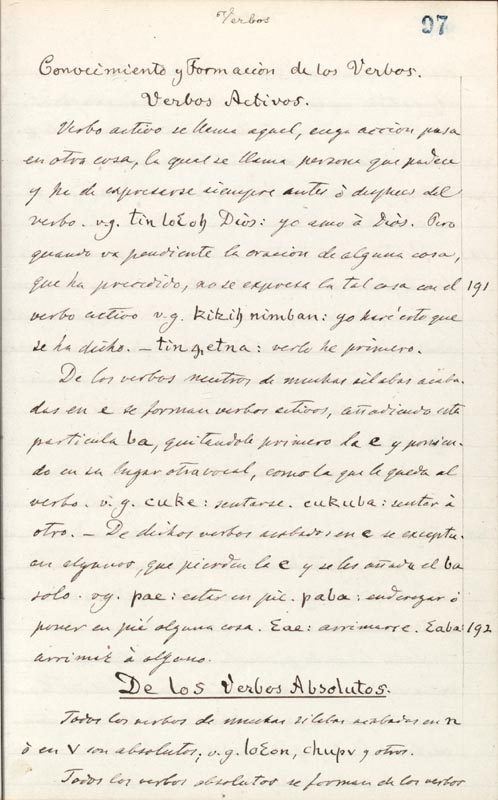 Verbos
97
Conocimiento y Formacion de los Verbos.
Verbos Activos.
Verbo activo se llama aquel, cuya acción pasa
en otra cosa, la qual se llama persona que padece
y ha de expresarse siempre antes ò despues del
verbo. v.g. tin loƐoh Dios: yo amo à Diòs. Pero
quando va pendiente la oracion de alguna cosa,
que ha precedido, no se expresa la tal cosa con el 191
verbo activo v.g. kikih nimban: yo haré esto que
se ha dicho. — tin etna: verlo he primero.
De los verbos neutros de muchas silabas acaba-
das en e se forman verbos activos, añadiendo esta
particula ba, quitandole primero la e y ponien-
do en su lugar otra vocal, como la que le queda al
verbo. v.g. cuke: sentarse. cukuba: sentar à
otro. — De dichos verbos acabados en e se exceptu-
an algunos, que pierden la e y se les añade el ba
solo. vg. pae: estar en pié. paba: enderezar ò
poner en pié alguna cosa. Ɛae: arrimarse. Ɛaba: 192
arrimar à alguno.
De los Verbos Absolutos.
Todos los verbos de muchas silabas acabados en n
ò en v son absolutos; v.g. loƐon, chupv y otros.
Todos los verbos absolutos se forman de los verbos